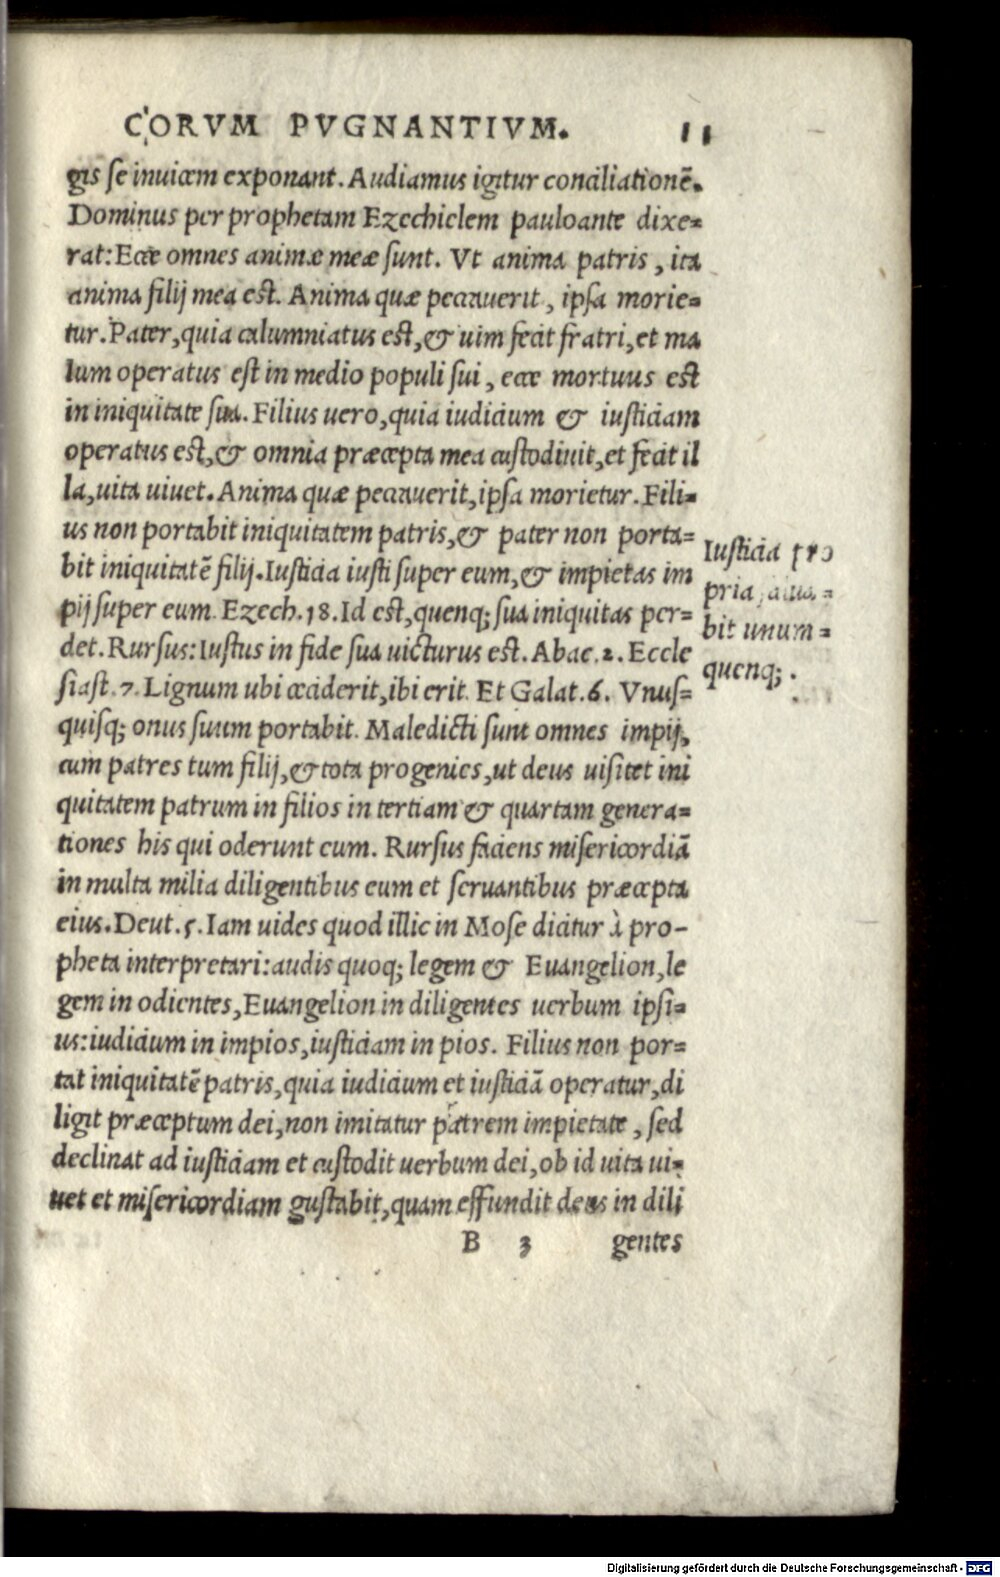 CORVM PVGNANTIVM. 11
gis se inuicem exponant. Audiamus igitur conciliationē.
Dominus per prophetam Ezechielem pauloante dixe=
rat: Ecce omnes animæ meæ sunt. Vt anima patris, ita
anima filij mea est. Anima quæ peccauerit, ipsa morie=
tur. Pater, quia calumniatus est, & uim fecit fratri, et ma
lum operatus est in medio populi sui, ecce mortuus est
in iniquitate sua. Filius uero, quia iudicium & iusticiam
operatus est, & omnia præcepta mea custodiuit, et fecit il
la, uita uiuet. Anima quæ peccauerit, ipsa morietur. Fili=
us non portabit iniquitatem patris, & pater non porta=
bit iniquitatē filij. Iusticia iusti super eum, & impietas im
pij super eum. Ezech. 18. Id est, quenq; sua iniquitas per=
det. Rursus: Iustus in fide sua uicturus est. Abac. 2. Eccle
siast. 7. Lignum ubi ceciderit, ibi erit. Et Galat. 6. Vnus=
quisq; onus suum portabit. Maledicti sunt omnes impij,
cum patres tum filij, & tota progenies, ut deus uisitet ini
quitatem patrum in filios in tertiam & quartam genera=
tiones his qui oderunt eum. Rursus faciens misericordiā
in multa milia diligentibus eum et seruantibus præcepta
eius. Deut. 5. Iam uides quod illic in Mose dicitur à pro-
pheta interpretari: audis quoq; legem & Euangelion, le
gem in odientes, Euangelion in diligentes uerbum ipsi=
us: iudicium in impios, iusticiam in pios. Filius non por=
tat iniquitatē patris, quia iudicium et iusticiā operatur, di
ligit præceptum dei, non imitatur patrem impietate, sed
declinat ad iusticiam et custodit uerbum dei, ob id uita ui=
uet et misericordiam gustabit, quam effundit deus in dili
B 3 gentes
Iusticia pro
pria
bit unum=
quenq;.
Digitalisierung gefördert durch die Deutsche Forschungsgemeinschaft - DFG